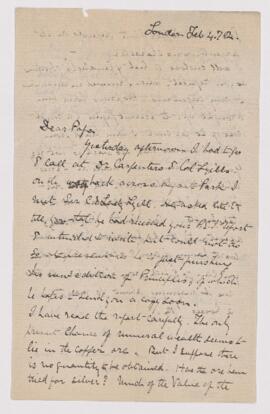 London Feb 4. 72.
Dear Papa
Yesterday afternoon I had to go
to call at Dr Carpenters & Col Lyells
on my way back across Regent Park I
met Sir C & Lady Lyell. He asked let to
tell you that he had received your report
& intended to write, but could not do
so at present as he is just finishing
his new edition of Principles, of which
he hopes to send you a copy soon.
I have read the report carefully. The only
present chance of mineral wealth seems to
lie in the copper ore. But I suppose there
is no quantity to be obtained. Has the ore been
tried for silver? Much of the value of the